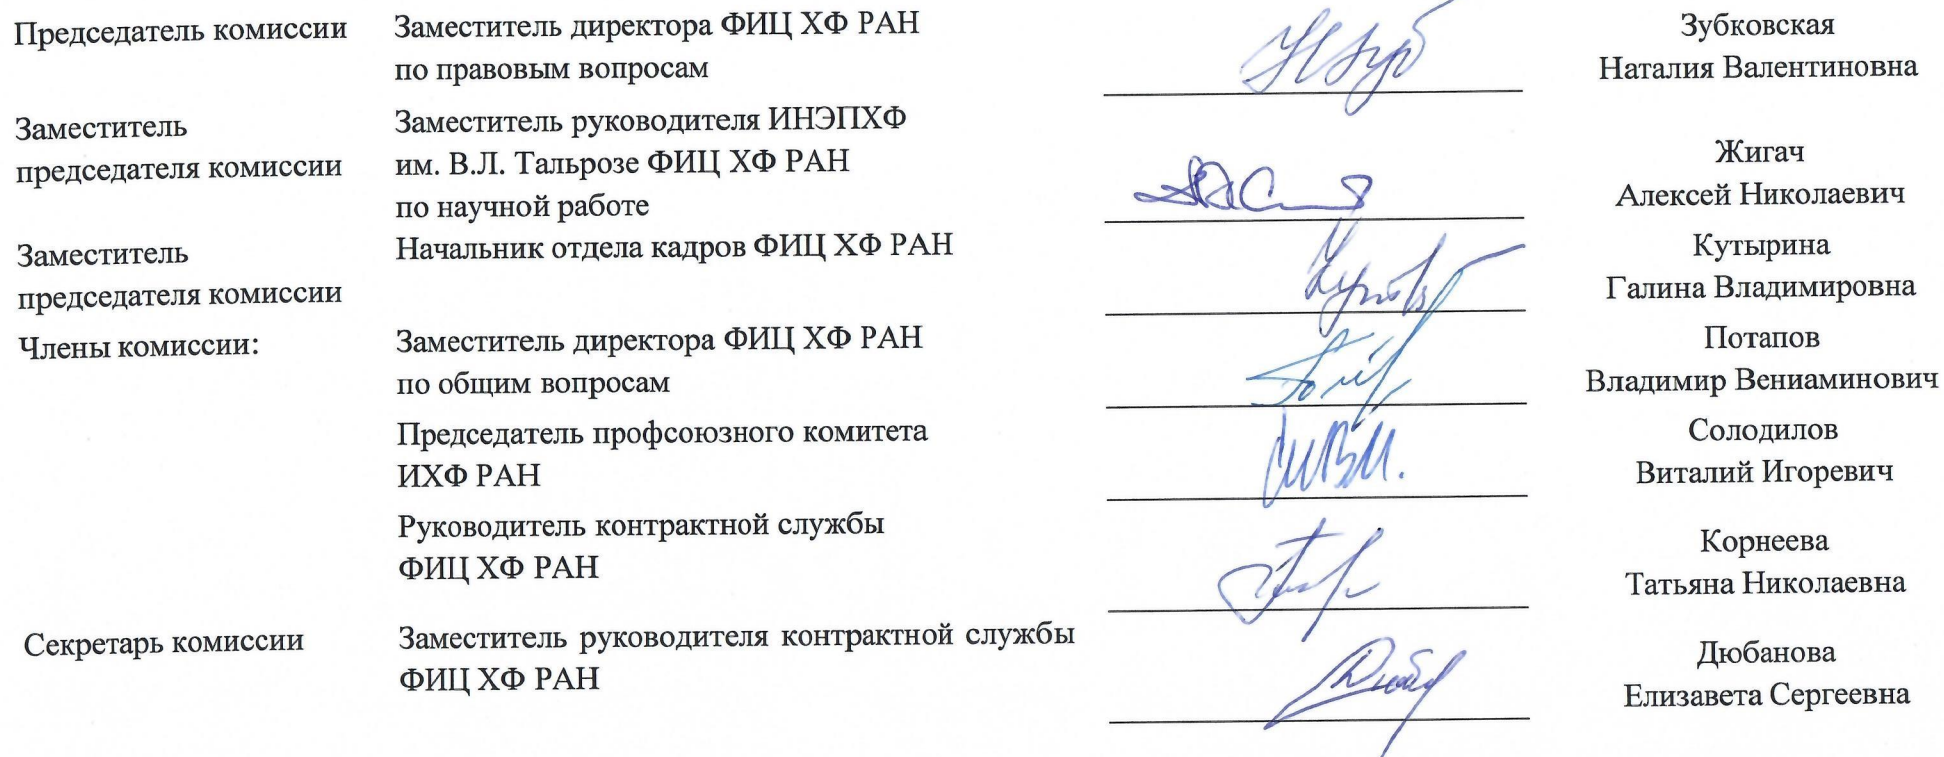 Председатель комиссии
Заместитель директора ФИЦ ХФ РАН
по правовым вопросам
Зубковская
Наталия Валентиновна
Заместитель
председателя комиссии
Заместитель руководителя ИНЭПХФ
им. В.Л. Тальрозе ФИЦ ХФ РАН
по научной работе
Жигач
Алексей Николаевич
Заместитель
председателя комиссии
Начальник отдела кадров ФИЦ ХФ РАН
Кутырина
Галина Владимировна
Члены комиссии:
Заместитель директора ФИЦ ХФ РАН
по общим вопросам
Потапов
Владимир Вениаминович
Председатель профсоюзного комитета
ИХФ РАН
Солодилов
Виталий Игоревич
Руководитель контрактной службы
ФИЦ ХФ РАН
Корнеева
Татьяна Николаевна
Секретарь комиссии
Заместитель руководителя контрактной службы
ФИЦ ХФ РАН
Дюбанова
Елизавета Сергеевна